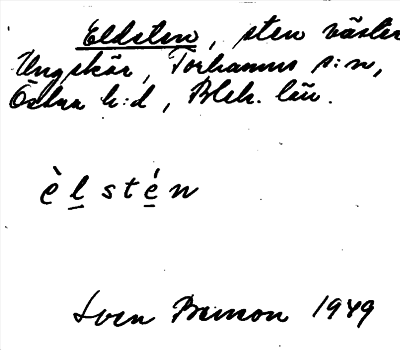 Eldsten, sten väster
Ungskär, Torhamns s:n,
Östra h:d, Blek. län.
èlstén
Sven Benson 1949